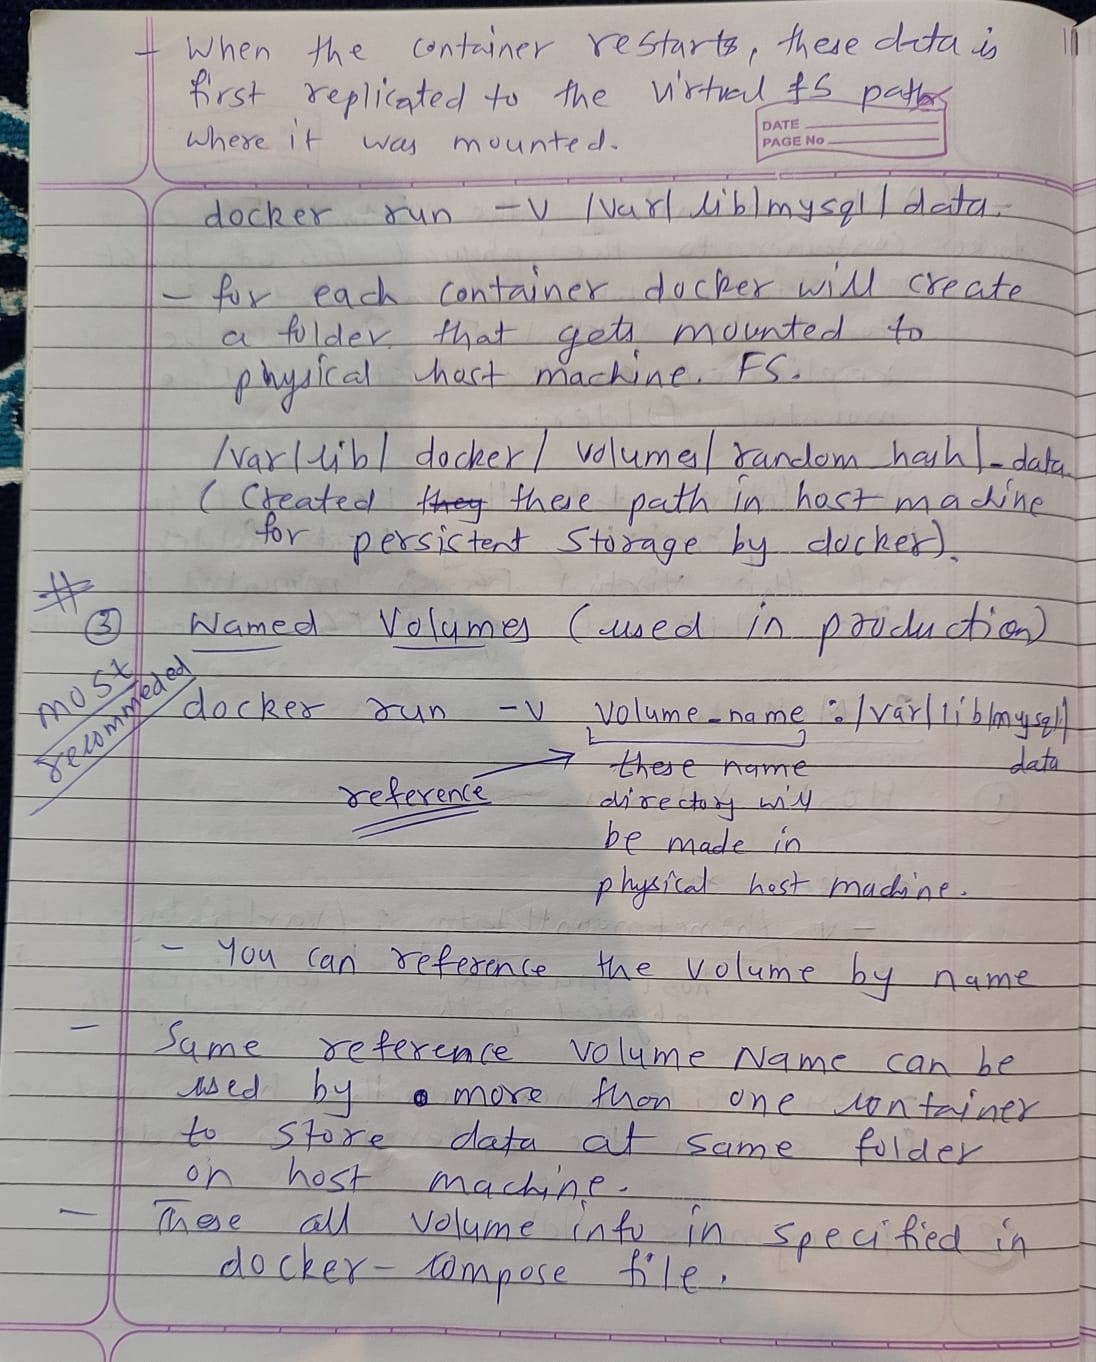 - When the container restarts, these data is
first replicated to the virtual FS path
where it was mounted.
DATE
PAGE No
docker run -v /var/lib/mysql/data.
- for each container docker will create
a folder that gets mounted to
physical host machine. FS.
/var/lib/docker/volumes/random hash/_data
(Created they these path in host machine
for persictent Storage by docker).
#
③ Named Volumes (used in production)
most
recommeded
docker run -v volume_name:/var/lib/mysql/
data
reference
these name
directory will
be made in
physical host machine.
- You can reference the volume by name
- Same reference volume Name can be
used by more than one container
to store data at same folder
on host machine.
- These all volume info in specified in
docker-compose file.